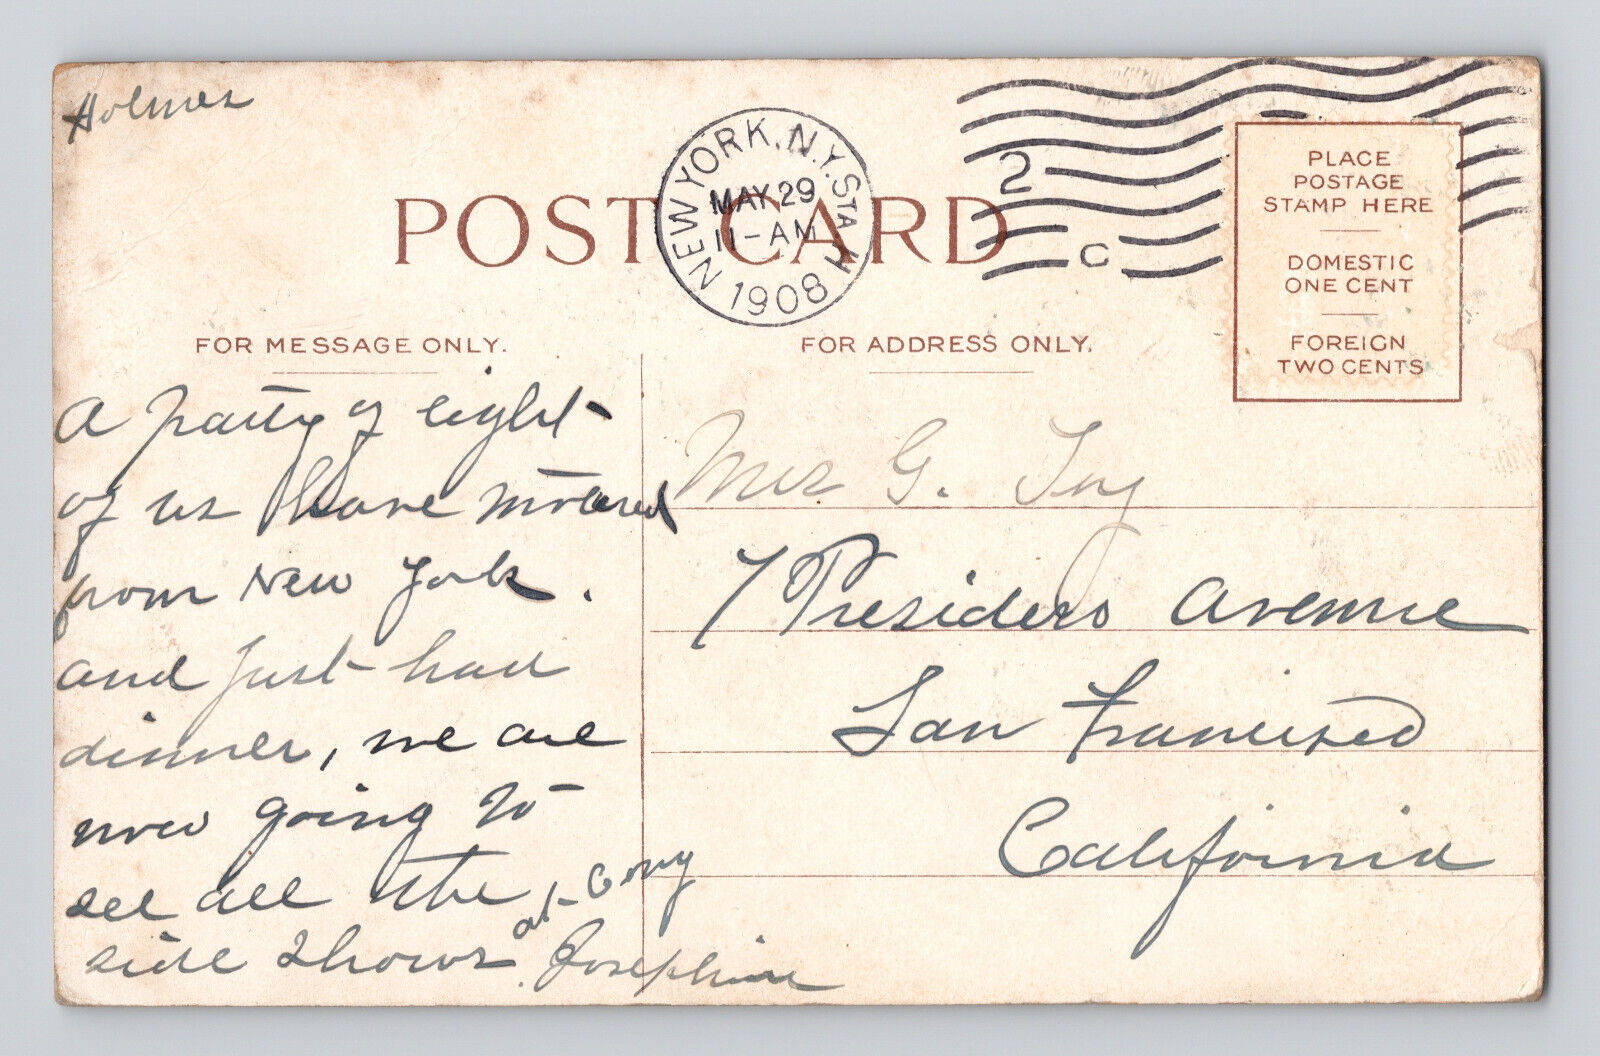 Holmes
POST CARD
NEW YORK, N.Y. STA H
MAY 29
11-AM
1908
2
C
PLACE
POSTAGE
STAMP HERE
DOMESTIC
ONE CENT
FOREIGN
TWO CENTS
FOR MESSAGE ONLY.
FOR ADDRESS ONLY.
A party of eight
of us have motored
from New York.
and just had
dinner, we are
now going to
see all the
side shows at Cony
Josephine
Mrs G. Toy
7 Presidero Avenue
San Francisco
California